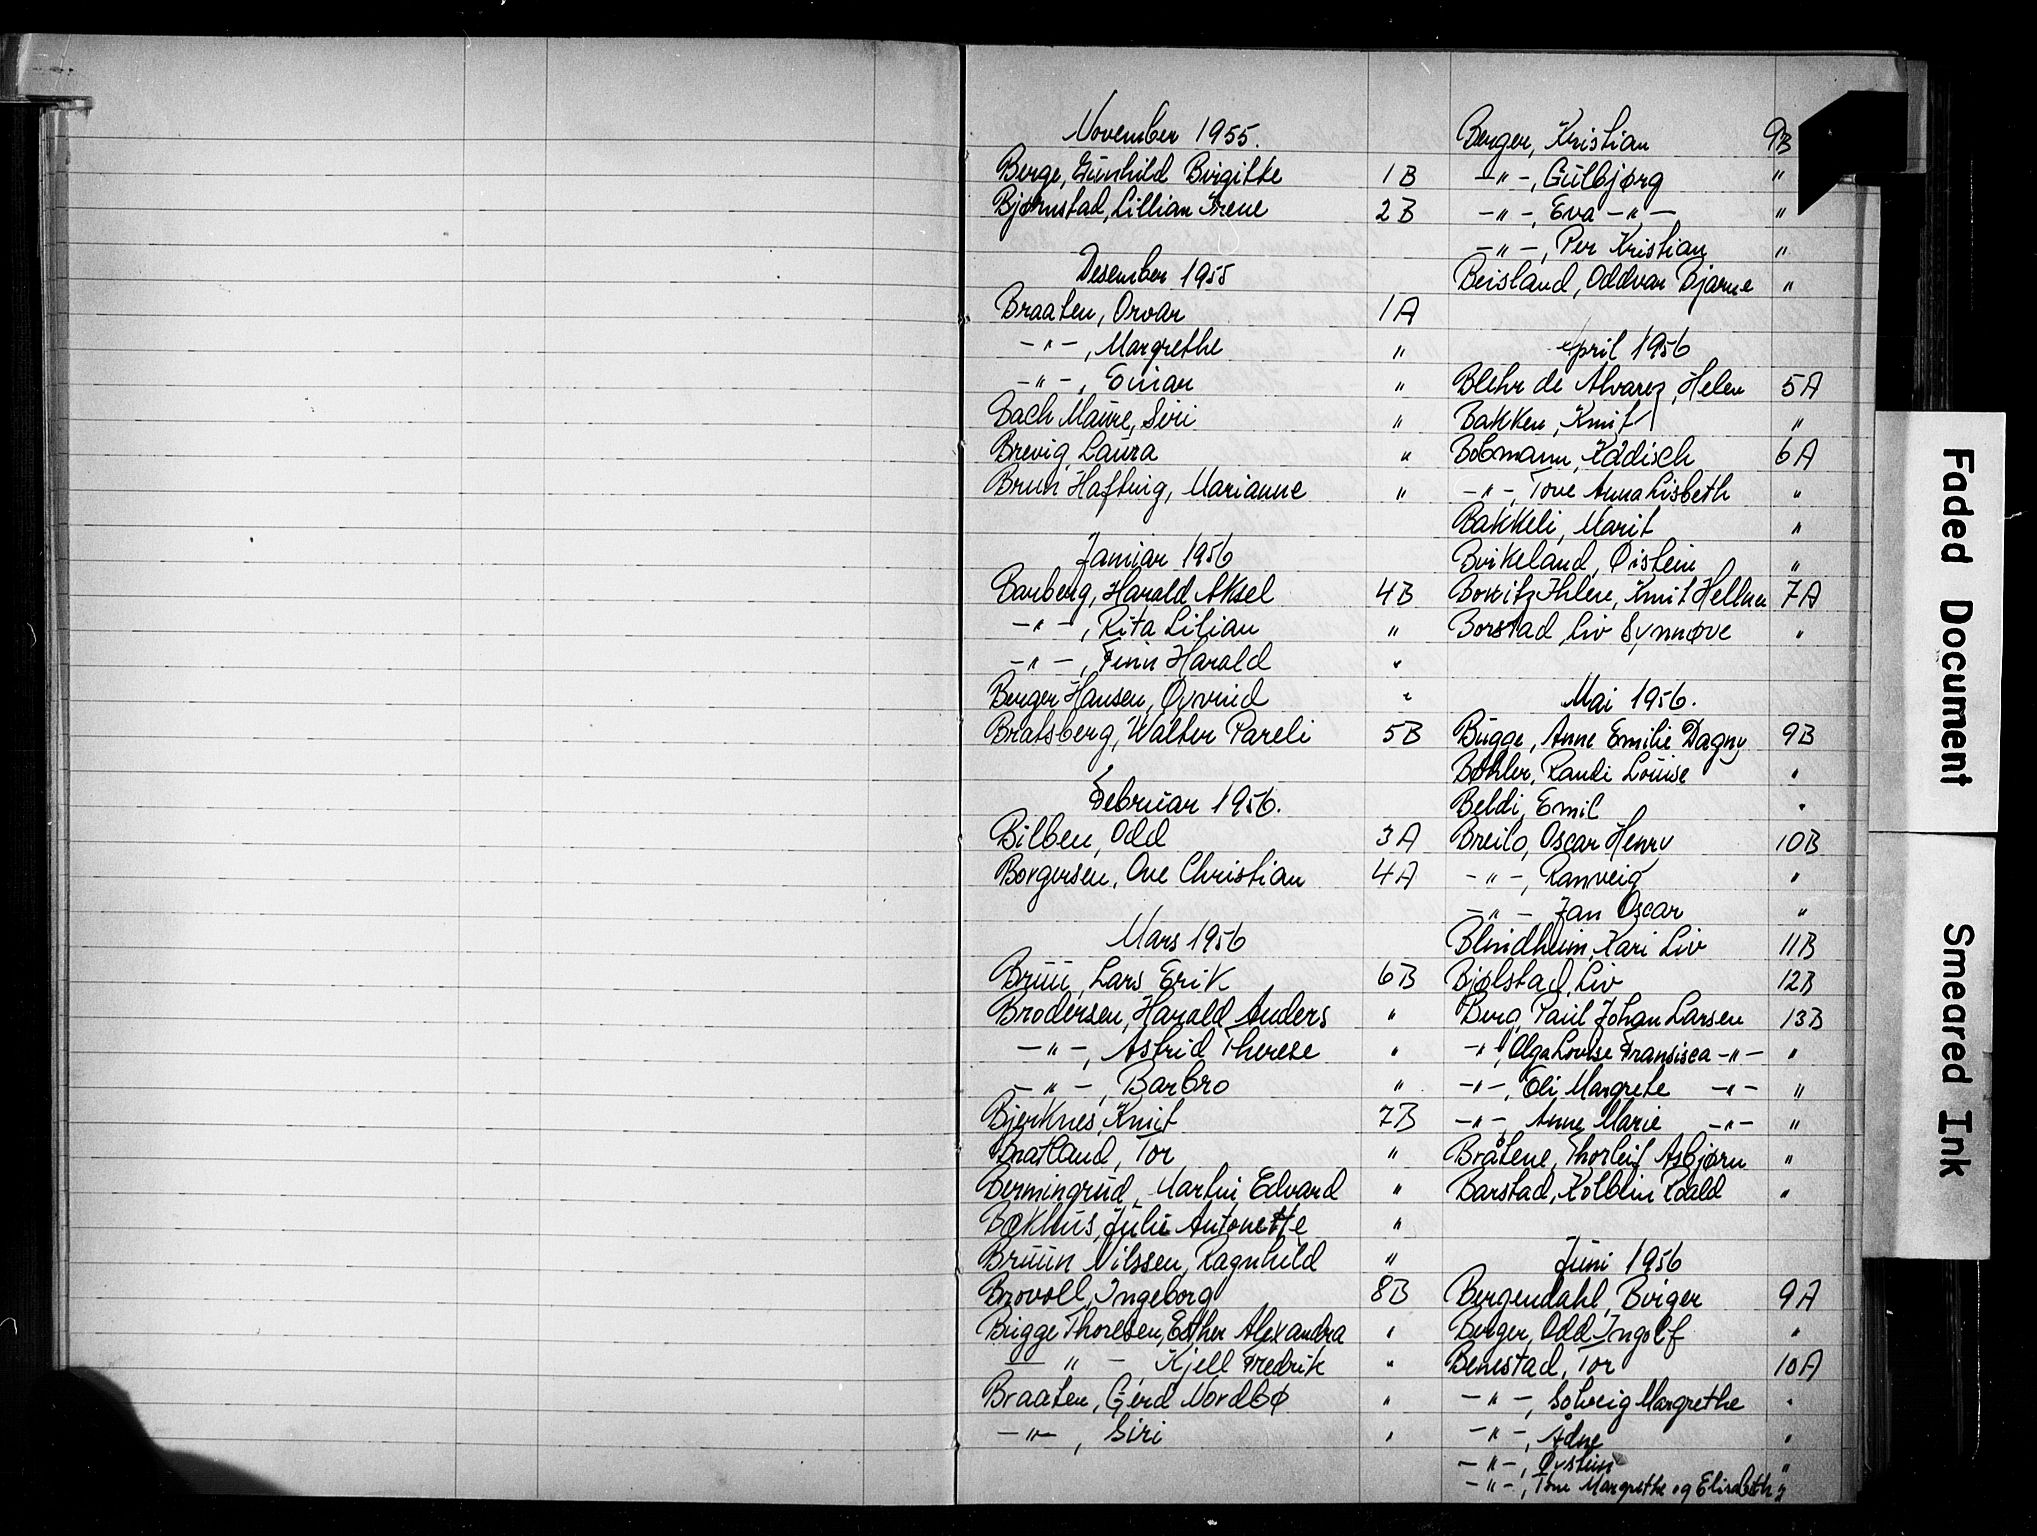 November 1955.
Berge, Gunhild Birgitte 1B
Bjørnstad, Lillian Irene 2B
Desember 1955
Braaten, Orvar 1A
-"-, Margrethe "
-"-, Einar "
Bach Maure, Siri "
Brevig Laura "
Brun Hafting, Marianne "
Januar 1956
Barberg, Harald Aksel 4B
-"-, Rita Lilian "
-"-, Finn Harald "
Berger Hansen, Øyvind "
Bratsberg, Walter Pareli 5B
Februar 1956.
Bilben, Odd 3A
Borgersen, Ove Christian 4A
Mars 1956
Bruu, Lars Erik 6B
Brodersen, Harald Anders "
-"-, Astrid Therese "
-"-, Barbro "
Bjerknes, Knut 7B
Bratland, Tor "
Bermingrud, Martin Edvard "
Bækhus, Julie Antonette "
Bruun Nilssen, Ragnhild "
Brovoll, Ingeborg 8B
Bugge Thoresen, Esther Alexandra "
-"- Kjell Fredrik "
Braaten, Gerd Nordbø "
-"-, Siri "
Berger, Kristian 9B
-"-, Gulbjørg "
-"-, Eva -"- "
-"-, Per Kristian "
Beisland, Oddvar Bjarne "
April 1956
Blehr de Alvarez, Helen 5A
Bakken, Knut "
Bobmann, Kadisch 6A
-"-, Tove Anna Lisbeth "
Bakkeli, Marit "
Birkeland, Øistein "
Borvitz Ihlen, Knut Hellner 7A
Borstad, Liv Synnøve "
Mai 1956.
Bugge, Anne Emilie Dagny 9B
Bøhler, Randi Louise "
Beldi, Emil "
Breilo, Oscar Henry 10B
-"-, Ranveig "
-"- Jan Oscar "
Blindheim, Kari Liv 11B
Bjølstad, Liv 12B
Berg, Paul Johan Larsen 13B
-"- Olga Lovise Fransisca -"- "
-"-, Eli Margrete -"- "
-"-, Anne Marie -"- "
Bråtene, Thorleif Asbjørn "
Barstad, Kolblin Roald "
Juni 1956
Bergendahl, Birger 9A
Berger, Odd Ingolf "
Benestad, Tor 10A
-"-, Solveig Margrethe "
-"-, Ådne "
-"-, Øystein "
-"-, Tone Margrethe og Elisabeth "
Faded Document
Smeared Ink